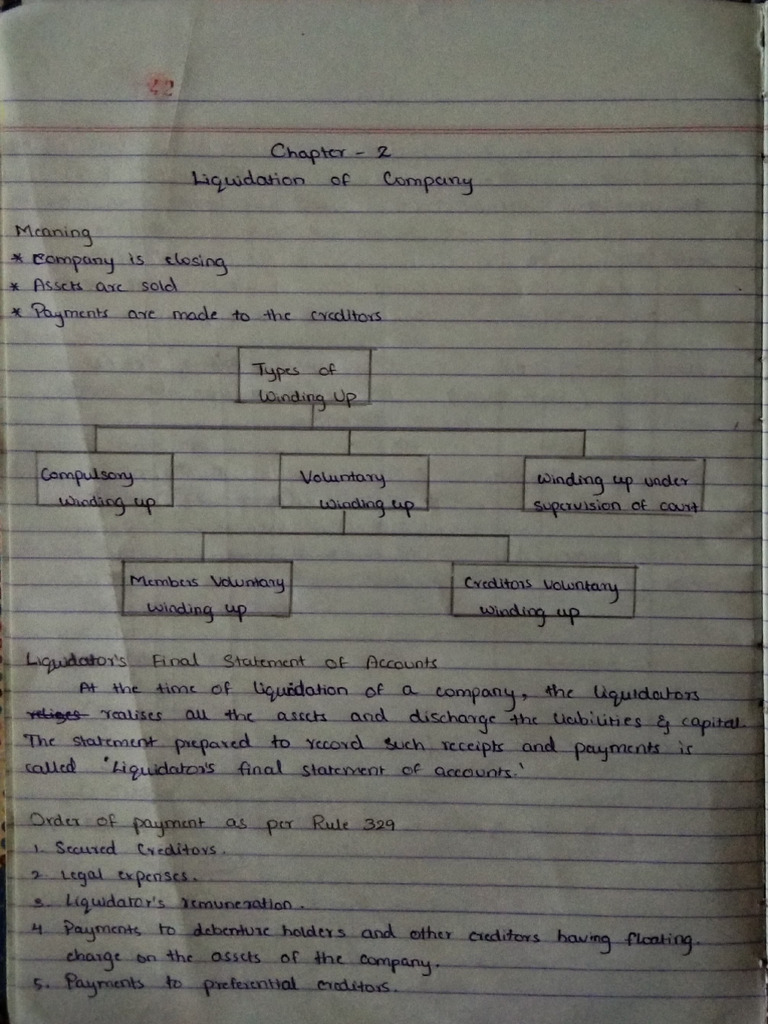 42
Chapter - 2
Liquidation of Company
Meaning
* Company is closing
* Assets are sold
* Payments are made to the creditors
Types of
Winding Up
Compulsory
winding up
Voluntary
winding up
Winding up under
supervision of court
Members Voluntary
winding up
Creditors Voluntary
winding up
Liquidator's Final Statement of Accounts
At the time of liquidation of a company, the liquidators
realises all the assets and discharge the liabilities & capital.
The statement prepared to record such receipts and payments is
called 'Liquidator's final statement of accounts.'
Order of payment as per Rule 329
1. Secured Creditors.
2. Legal expenses.
3. Liquidator's remuneration.
4. Payments to debenture holders and other creditors having floating.
charge on the assets of the company.
5. Payments to preferential creditors.